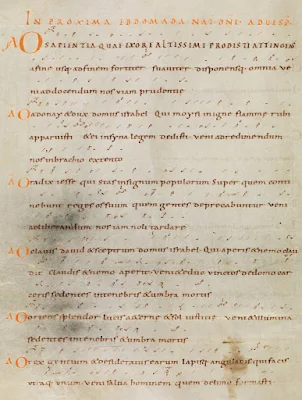 IN PROXIMA EBDOMADA NAT DNI AD VESP
A O SAPIENTIA QUAE EX ORE ALTISSIMI PRODISTI ATTINGENS
a fine usq; ad finem fortiter suaviter disponensq; omnia ve
ni ad docendum nos viam prudentie
A O adonay & dux domus israhel Qui moysi in igne flamme rubi
apparuisti & ei in syna legem dedisti veni ad redimendum
nos in brachio extento
A O radix iesse qui stas in signum populorum Super quem conti
nebunt reges os suum quem gentes deprecabuntur veni
ad liberandum nos iam noli tardare
A O clavis david & sceptrum domus israhel Qui aperis & nemo clau
dit claudis & nemo aperit veni & educ vinctos de domo car
ceris sedentes in tenebris & umbra mortis
A O oriens splendor lucis aeterne & sol iustitie veni & illumina
sedentes in tenebris & umbra mortis
A O rex gentium & desideratus earum Lapisq; angularis qui facis
utraq; unum veni salva hominem quem de limo formasti